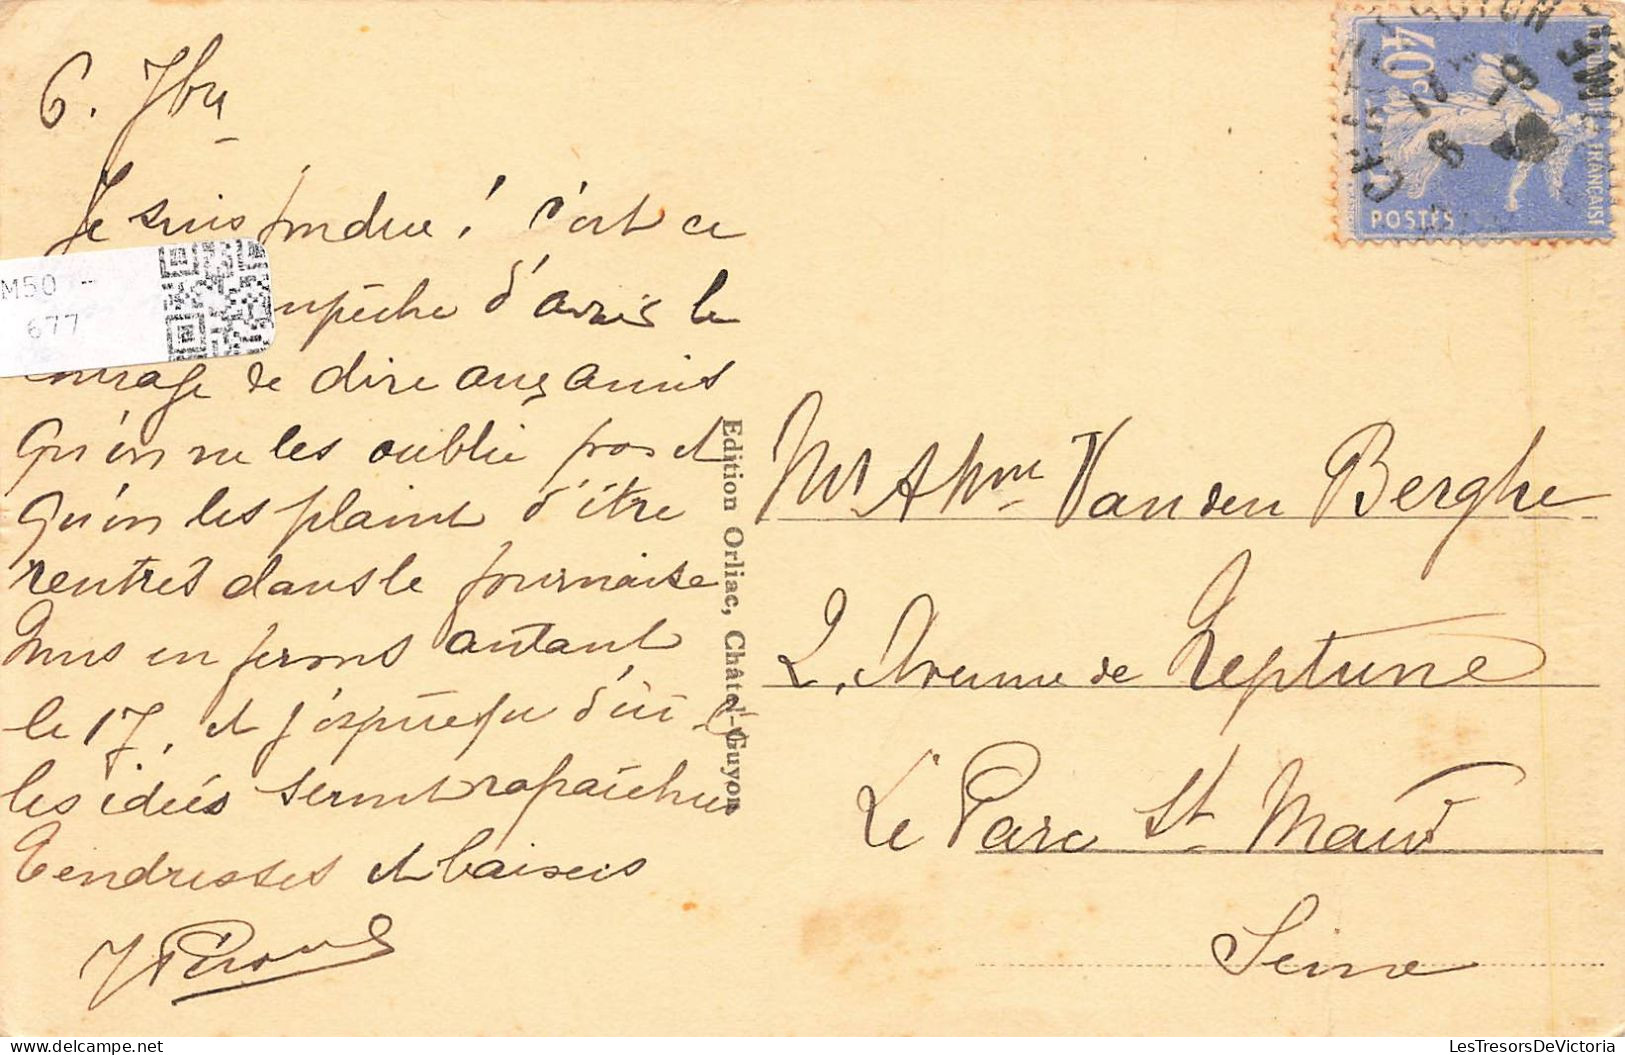 6. 7bre
Je suis fondue ! c'est ce
M50 -
677
mpêche d'avoir le
courage de dire aux amis
qu'on ne les oublie pas et
qu'on les plaint d'être
rentrés dans la fournaise
Nous en ferons autant
le 17, et j'espère qu'd'ici là
les idées seront rafraîchies
Tendresses et baisers
Edition Orliac, Châtel-Guyon
40c
POSTES
FRANÇAISE
Mr & Mme Van den Berghe
2, Avenue de Neptune
Le Parc St Maur
Seine
LesTresorsDeVictoria
delcampe.net